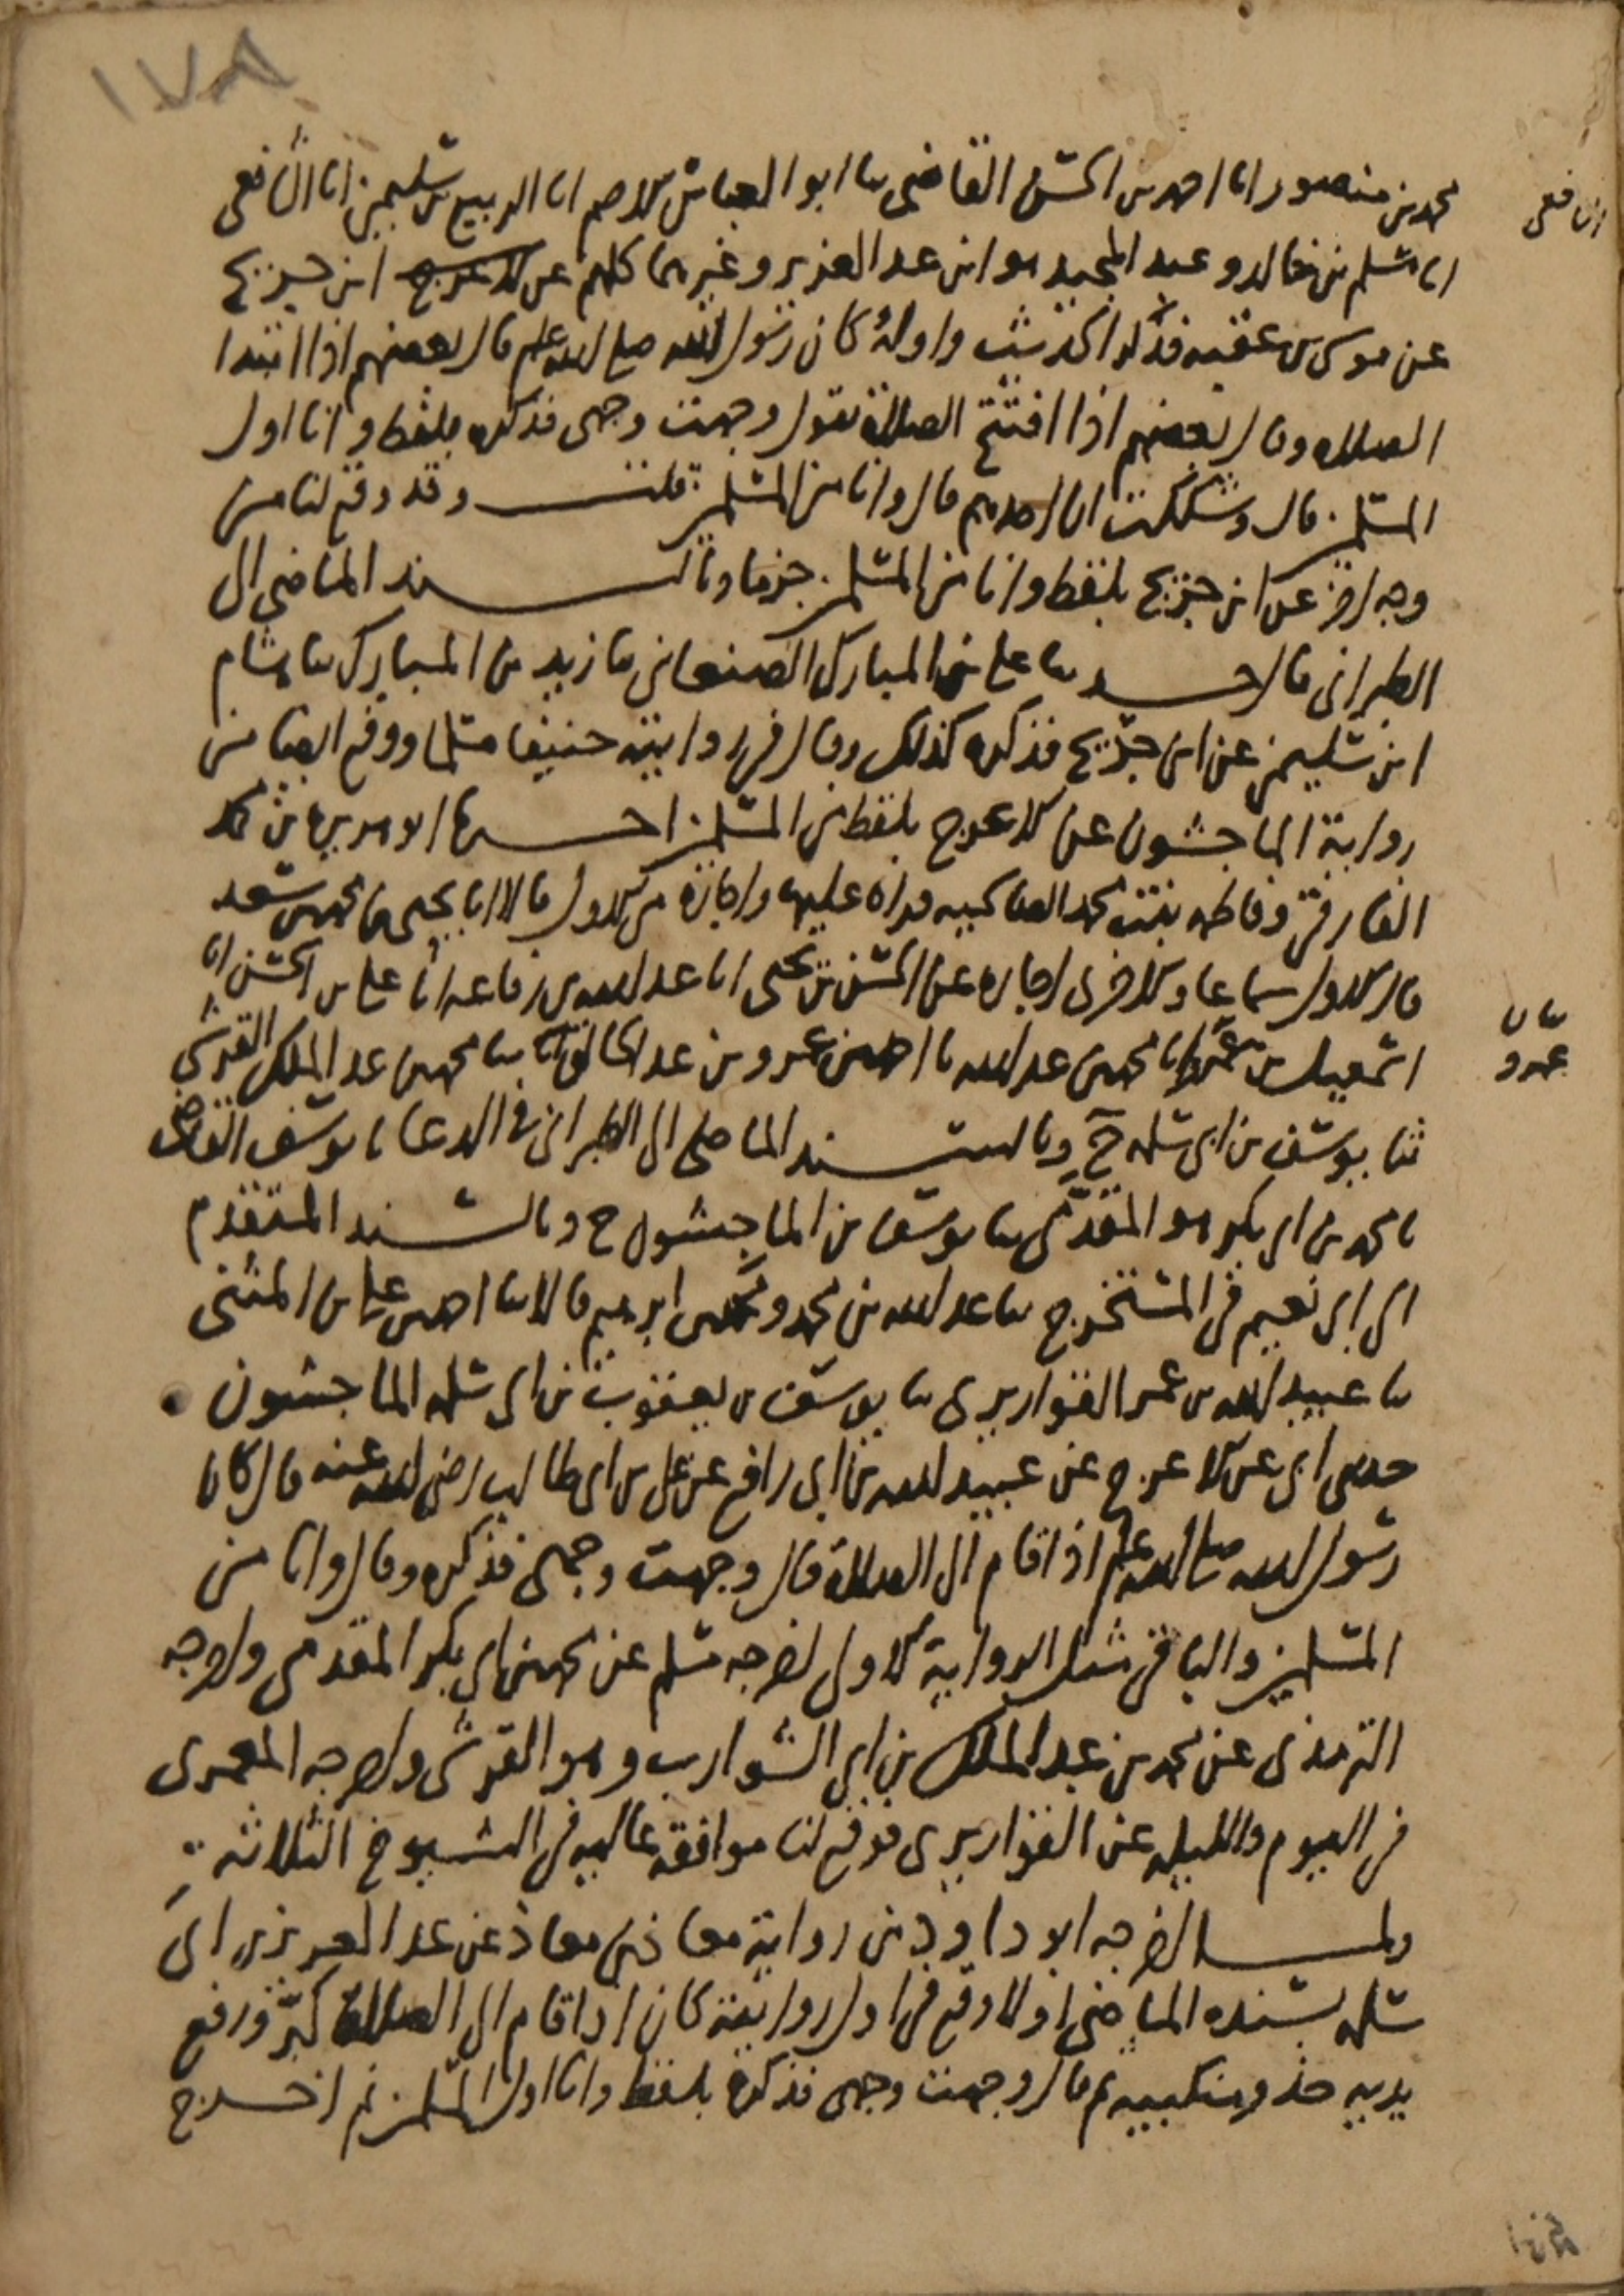 ١٧٨
محمد بن منصور انا احمد بن الحسن القاضي ثنا ابو العباس الاصم انا الربيع بن سليمن انا الشافعي
الشافعي
انا مسلم بن خالد وعبد المجيد هو ابن عبد العزيز وغيرهما كلهم عن ابن جريج
عن موسى بن عقبه فذكر الحديث واوله كان رسول الله صلى الله عليه وسلم قال بعضهم اذا ابتدا
الصلاه وقال بعضهم اذا افتتح الصلاة يقول وجهت وجهي فذكره بلفظ وانا اول
المسلمين قال وشككت ان قال احدهم قال وانا من المسلمين قلت وقد وقع لنا من
وجه اخر عن ابن جريج بلفظ وانا من المسلمين جزما وبالسند الماضي الى
الطبراني قال حدثنا علي بن المبارك الصنعاني ثنا زيد بن المبارك ثنا هشام
ابن سليمن عن ابن جريج فذكره كذلك وقال في روايته حنيفا مسلما ووقع ايضا من
رواية الماجشون عن الاعرج بلفظ من المسلمين اخبرنا ابو هريرة بن محمد
الفارقي وفاطمه بنت محمد قراة عليها واجازة من الاول قالا انا يحيى بن محمد بن سعد
قال الاول سماعا والاخرى اجازه عن الحسن بن يحيى انا عبد الله بن رفاعه انا علي بن الحسن انا
اسمعيل بن عمرو انا محمد بن عبد الله نا احمد بن عمرو بن عبد الخالق ثنا محمد بن عبد الملك القرشي
عمرو
ثنا يوسف بن ابي سلمه ح وبالسند الماضي الى الطبراني في الدعا نا يوسف القاضي
نا محمد بن ابي بكر هو المقدمي ثنا يوسف بن الماجشون ح وبالسند المتقدم
الى ابي نعيم في المستخرج ثنا عبد الله بن محمد ومحمد بن ابرهيم قالا ثنا احمد بن علي بن المثنى
ثنا عبيد الله بن عمر القواريري ثنا يوسف بن يعقوب بن ابي سلمه الماجشون
حدثني ابي عن الاعرج عن عبيد الله بن ابي رافع عن علي بن ابي طالب رضي الله عنه قال كان
رسول الله صلى الله عليه وسلم اذا قام الى الصلاة قال وجهت وجهي فذكره وقال وانا من
المسلمين والباقي مثل الرواية الاولى اخرجه مسلم عن محمد بن ابي بكر المقدمي واخرجه
الترمذي عن محمد بن عبد الملك بن ابي الشوارب وهو القرشي واخرجه المعمري
في اليوم والليله عن القواريري فوقع لنا موافقة عاليه في الشيوخ الثلاثه
ولما اخرجه ابو داود من رواية معاذ بن معاذ عن عبد العزيز بن ابي
سلمه بسنده الماضي اولا وقع في اول روايته كان اذا قام الى الصلاة كبر ورفع
يديه حذو منكبيه ثم قال وجهت وجهي فذكره بلفظ وانا اول المسلمين ثم اخرج